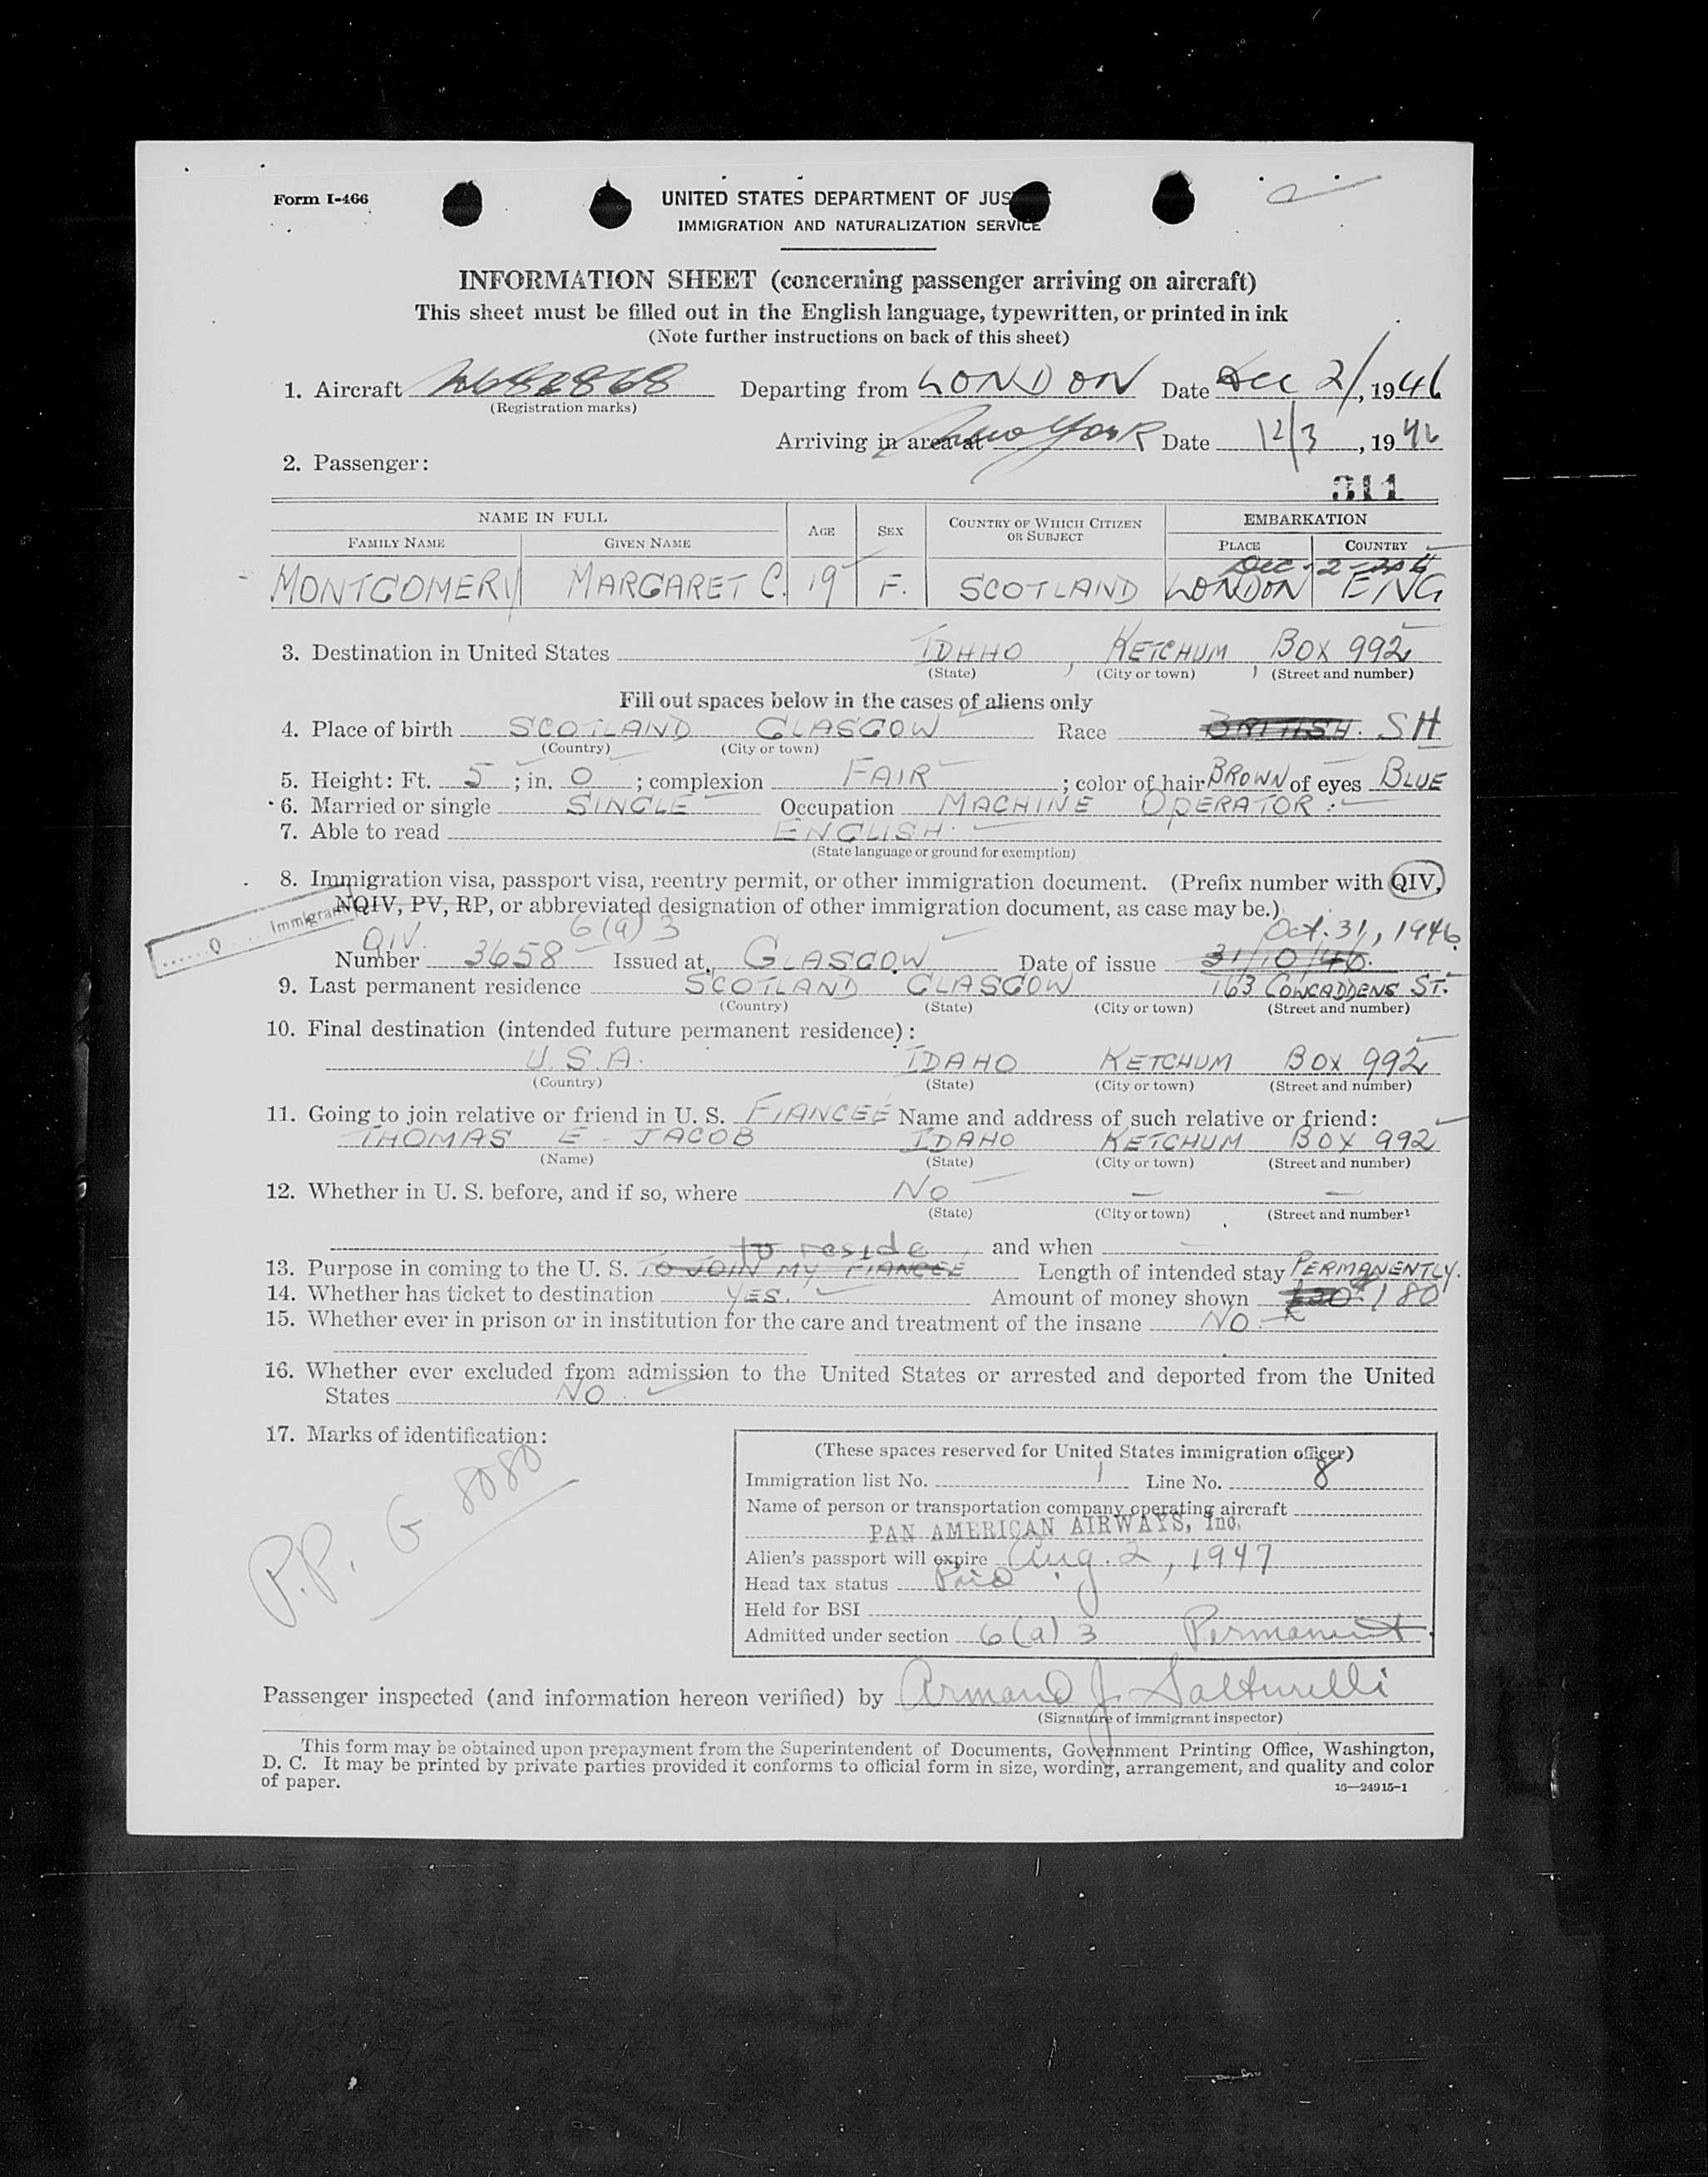 Form I-466
UNITED STATES DEPARTMENT OF JUS
IMMIGRATION AND NATURALIZATION SERVICE
INFORMATION SHEET (concerning passenger arriving on aircraft)
This sheet must be filled out in the English language, typewritten, or printed in ink
(Note further instructions on back of this sheet)
1. Aircraft Departing from LONDON Date Dec 2/, 1946
(Registration marks)
Arriving in area at New York Date 12/3, 1946
2. Passenger:
311
NAME IN FULL AGE SEX COUNTRY OF WHICH CITIZEN OR SUBJECT EMBARKATION
FAMILY NAME GIVEN NAME PLACE COUNTRY
Dec - 2
MONTGOMERY MARGARET C. 19 F. SCOTLAND LONDON ENG
3. Destination in United States IDAHO, KETCHUM, BOX 992
(State) (City or town) (Street and number)
Fill out spaces below in the cases of aliens only
4. Place of birth SCOTLAND GLASGOW Race BRITISH. SH
(Country) (City or town)
5. Height: Ft. 5; in. 0; complexion FAIR; color of hair BROWN of eyes BLUE
6. Married or single SINGLE Occupation MACHINE OPERATOR.
7. Able to read ENGLISH.
(State language or ground for exemption)
8. Immigration visa, passport visa, reentry permit, or other immigration document. (Prefix number with QIV,
NQIV, PV, RP, or abbreviated designation of other immigration document, as case may be.)
Immigrant
QIV. 6(a)3 Oct. 31, 1946.
Number 3658 Issued at GLASGOW Date of issue 31/10/46.
9. Last permanent residence SCOTLAND GLASGOW 163 COWCADDENS ST.
(Country) (State) (City or town) (Street and number)
10. Final destination (intended future permanent residence):
U.S.A. IDAHO KETCHUM BOX 992
(Country) (State) (City or town) (Street and number)
11. Going to join relative or friend in U. S. FIANCEÉ Name and address of such relative or friend:
THOMAS E. JACOB IDAHO KETCHUM BOX 992
(Name) (State) (City or town) (Street and number)
12. Whether in U. S. before, and if so, where NO — —
(State) (City or town) (Street and number)
to reside and when —
13. Purpose in coming to the U. S. TO JOIN MY FIANCEE Length of intended stay PERMANENTLY.
14. Whether has ticket to destination YES. Amount of money shown 180
15. Whether ever in prison or in institution for the care and treatment of the insane NO.
16. Whether ever excluded from admission to the United States or arrested and deported from the United
States NO.
17. Marks of identification:
P.P. G 8080
(These spaces reserved for United States immigration officer)
Immigration list No. 1 Line No. 8
Name of person or transportation company operating aircraft
PAN AMERICAN AIRWAYS, Inc.
Alien's passport will expire Aug. 2, 1947
Head tax status Paid
Held for BSI
Admitted under section 6(a)3 Permanent
Passenger inspected (and information hereon verified) by Armand J. Salturelli
(Signature of immigrant inspector)
This form may be obtained upon prepayment from the Superintendent of Documents, Government Printing Office, Washington,
D. C. It may be printed by private parties provided it conforms to official form in size, wording, arrangement, and quality and color
of paper.
16—24915-1